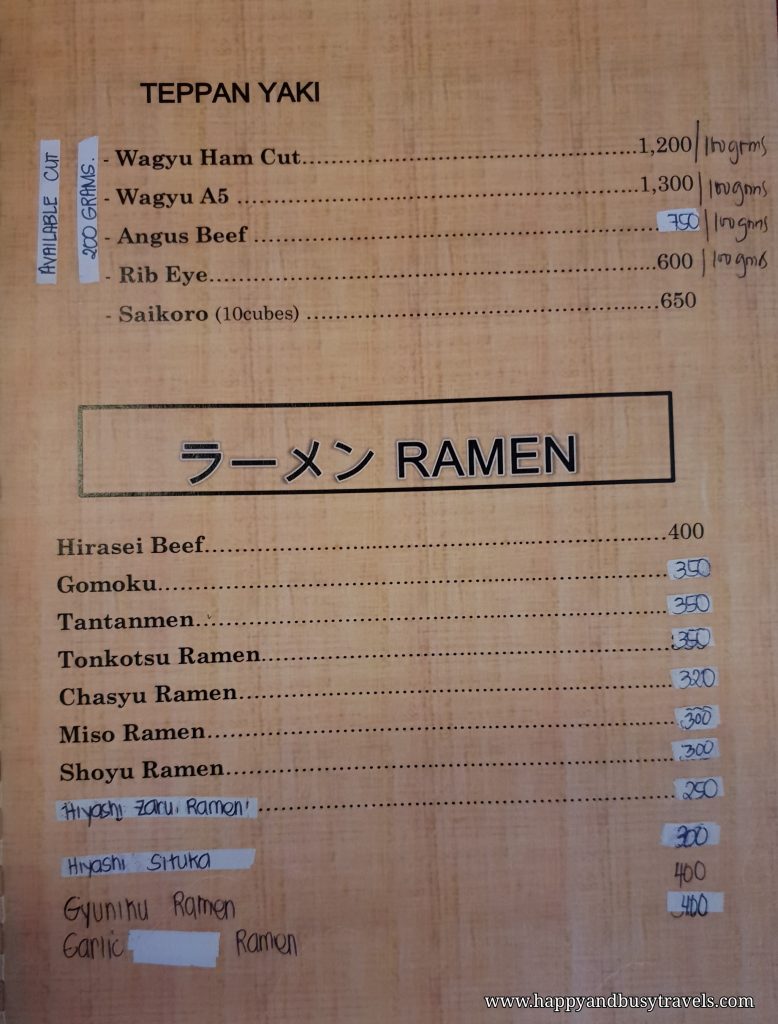 TEPPAN YAKI
AVAILABLE CUT
200 GRAMS.
- Wagyu Ham Cut....................1,200/100grms
- Wagyu A5 ....................1,300/100grms
- Angus Beef ....................750/100grms
- Rib Eye....................600/100gms
- Saikoro (10cubes) ....................650
ラーメン RAMEN
Hirasei Beef....................400
Gomoku....................350
Tantanmen....................350
Tonkotsu Ramen....................350
Chasyu Ramen....................320
Miso Ramen....................300
Shoyu Ramen....................300
Hiyashi Zaru Ramen....................250
Hiyashi Situka 300
Gyuniku Ramen 400
Garlic Ramen 400
www.happyandbusytravels.com